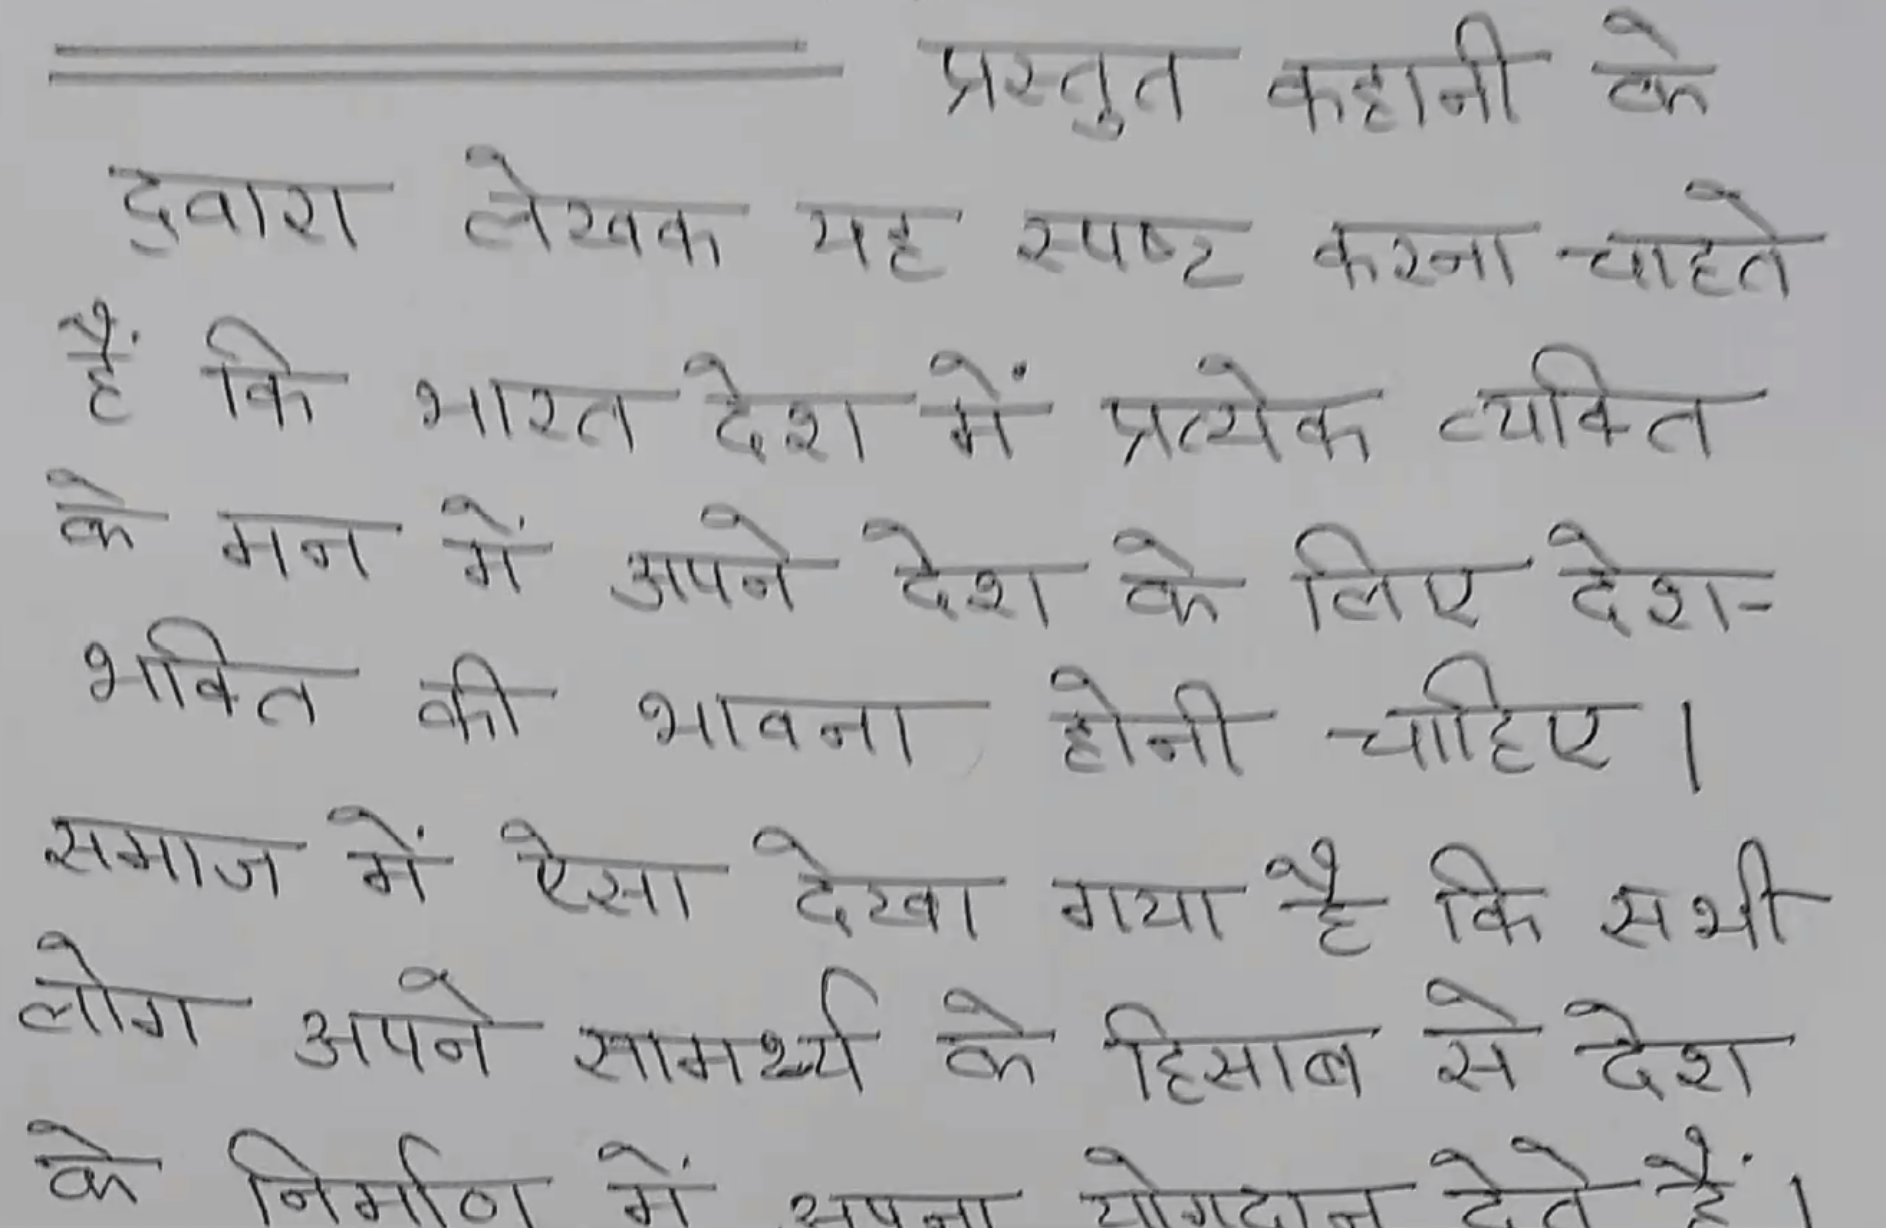 प्रस्तुत कहानी के
दुवारा लेखक यह स्पष्ट करना चाहते
हैं कि भारत देश में प्रत्येक व्यक्ति
के मन में अपने देश के लिए देश-
भक्ति की भावना होनी चाहिए।
समाज में ऐसा देखा गया है कि सभी
लोग अपने सामर्थ्य के हिसाब से देश
के निर्माण में अपना योगदान देते हैं।